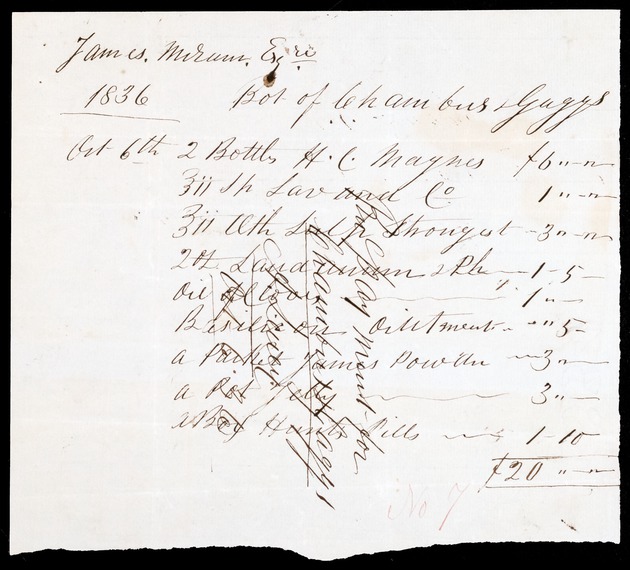 James. Miram. Esqre
1836 Bot of Chambers & Guggs
Oct 6th 2 Bottles H. C. Maynes £6 "-"
3ii Sh Lav and Co 1 "-"
3ii Wth Strongest 3 "-"
2oz Laudanum & Ph 1-5-
Oil of Cloves 1 "-
Basilicon Ointment "5-
a Packet James Powder 3 "-
a Pot Jelly 3 "-
a Box Hunts Pills 1-10
£20 "-"
Payment for
Chambers & Guggs
No 7